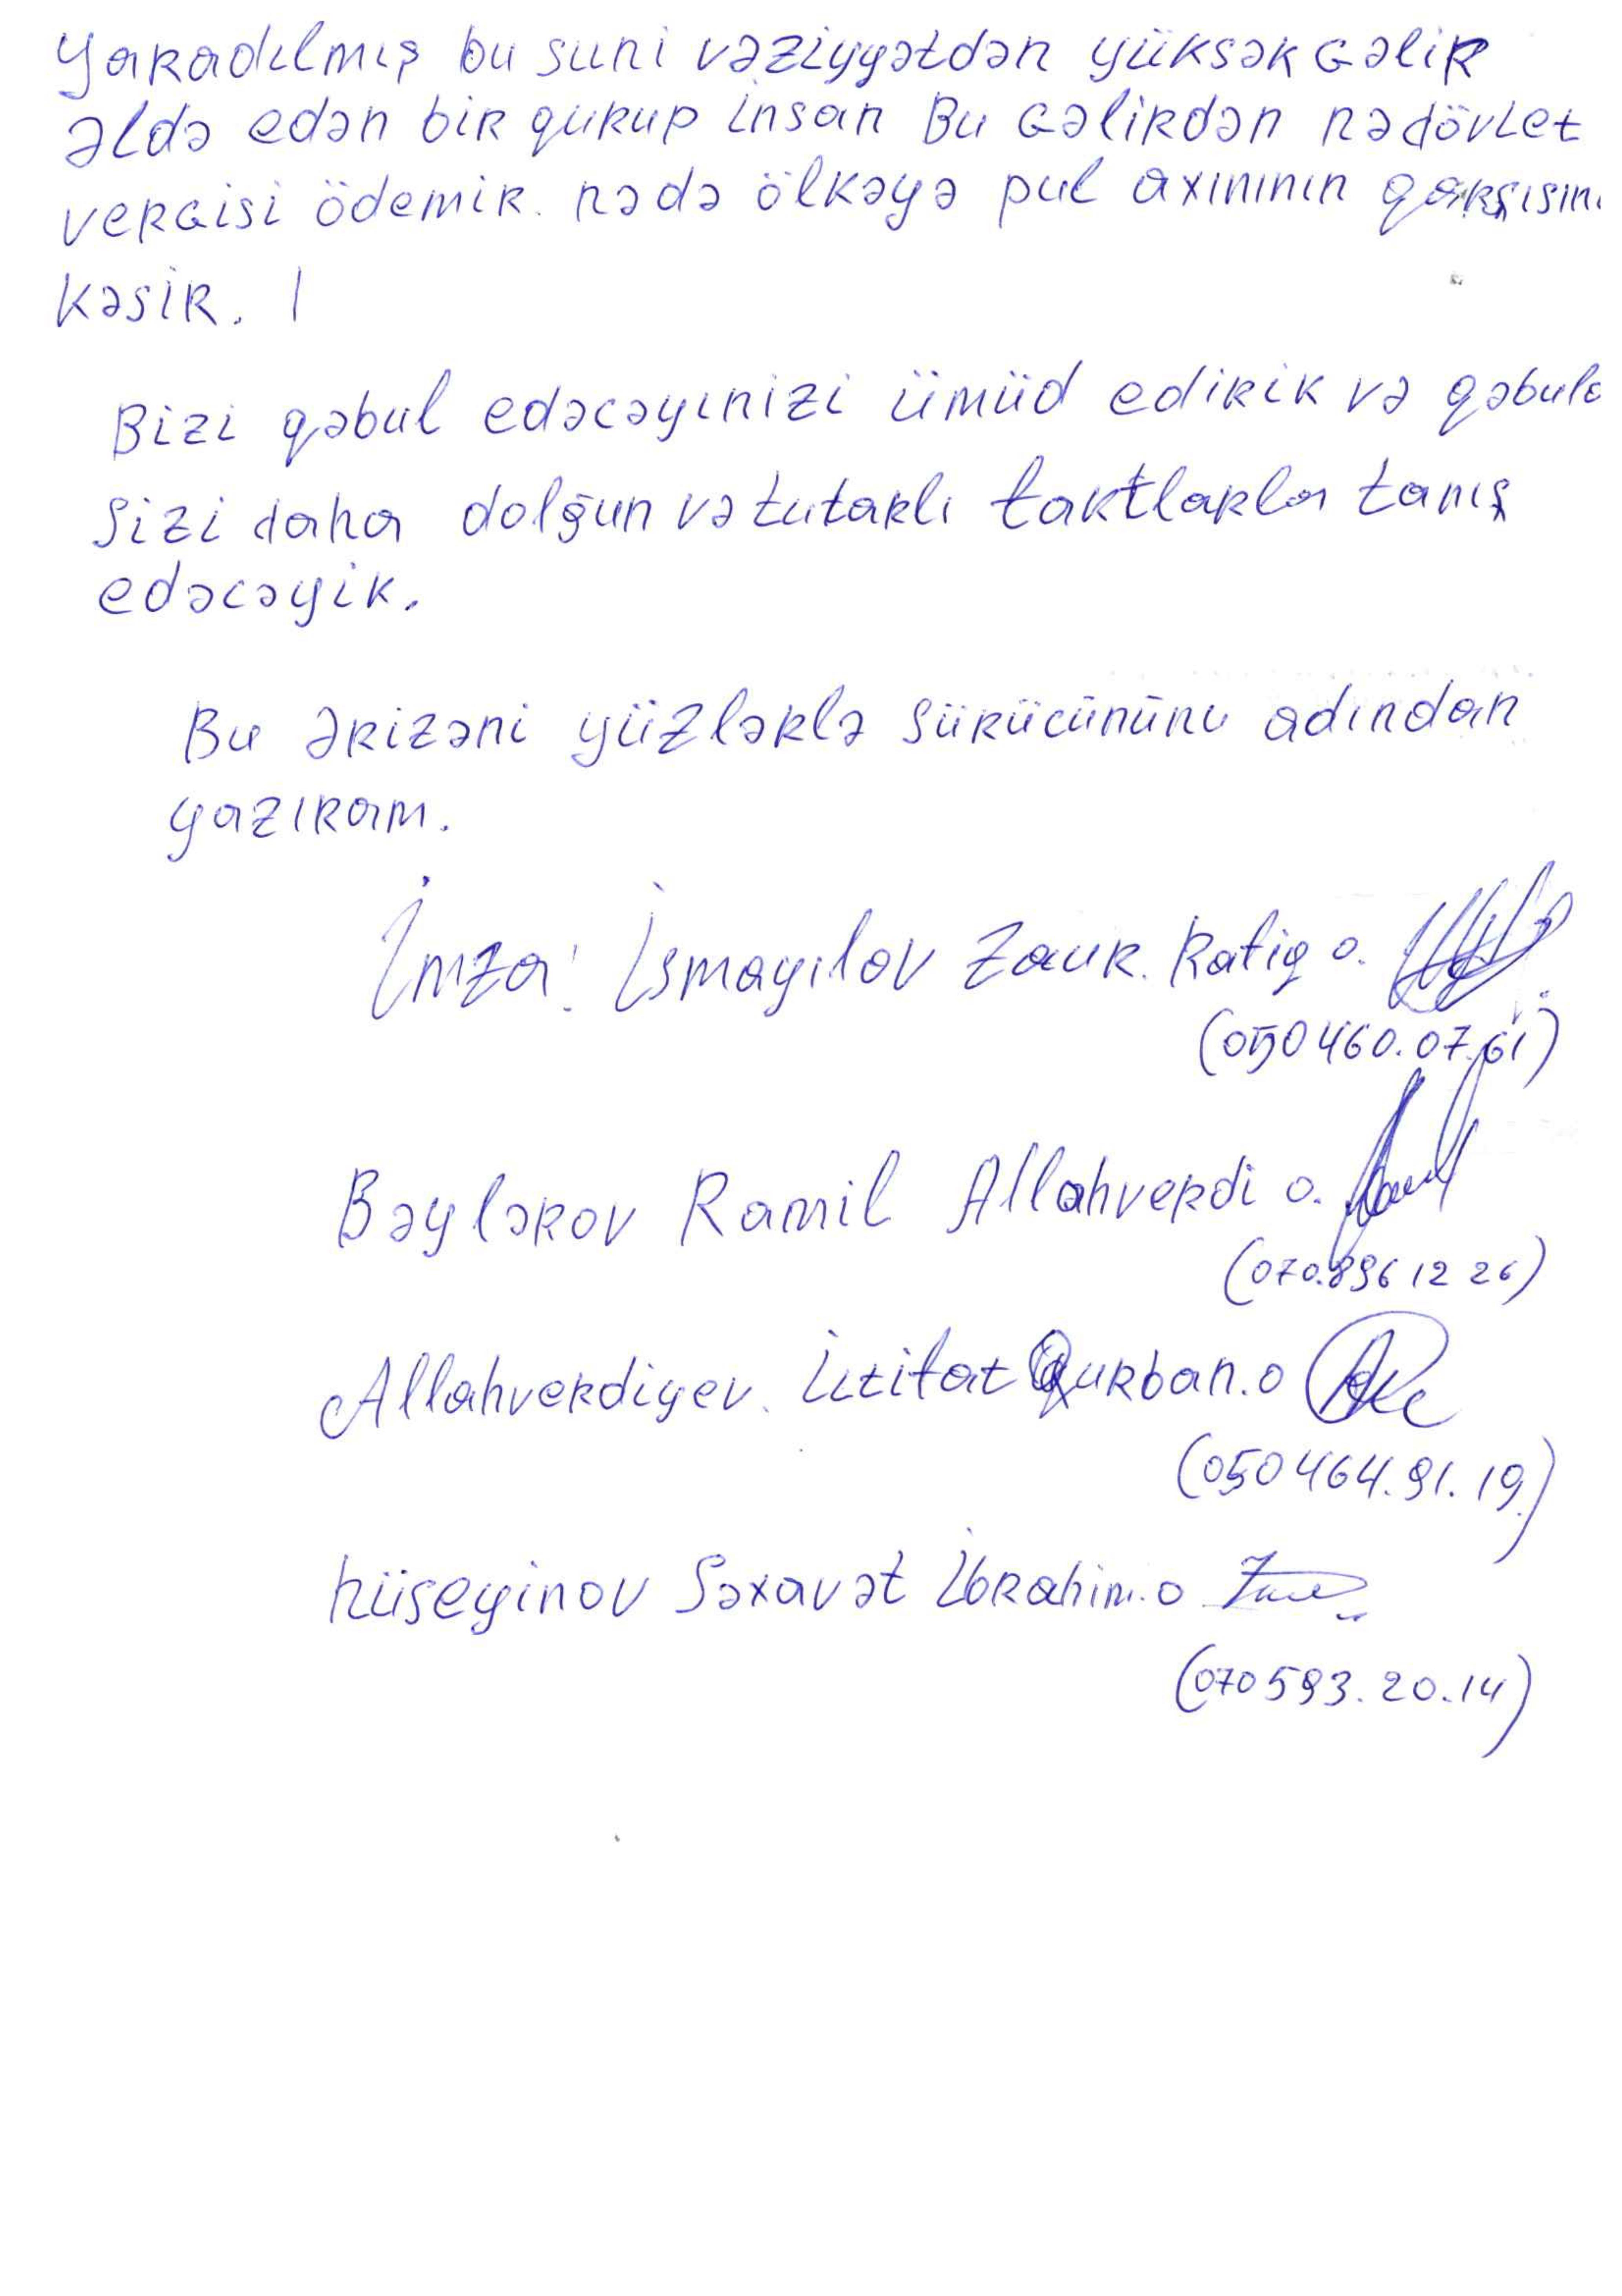 Yaradılmış bu suni vəziyyətdən yüksək gəlir
əldə edən bir qurup insan Bu gəlirdən nə dövlet
vergisi ödemir. nədə ölkəyə pul axınının qarşısını
kəsir. |
Bizi qəbul edəcəyinizi ümüd edirik və qəbulda
Sizi daha dolğun və tutarlı faktlarla tanış
edəcəyik.
Bu ərizəni yüzlərlə sürücününü adından
yazıram.
İmza: İsmayılov Zaur. Rafiq o.
(050 460.07.61)
Bəylərov Ramil Allahverdi o.
(070.896 12 26)
Allahverdiyev. İltifat Qurban.o
(050 464.91.19)
hüseyinov Səxavət İbrahim.o
(070 593.20.14)